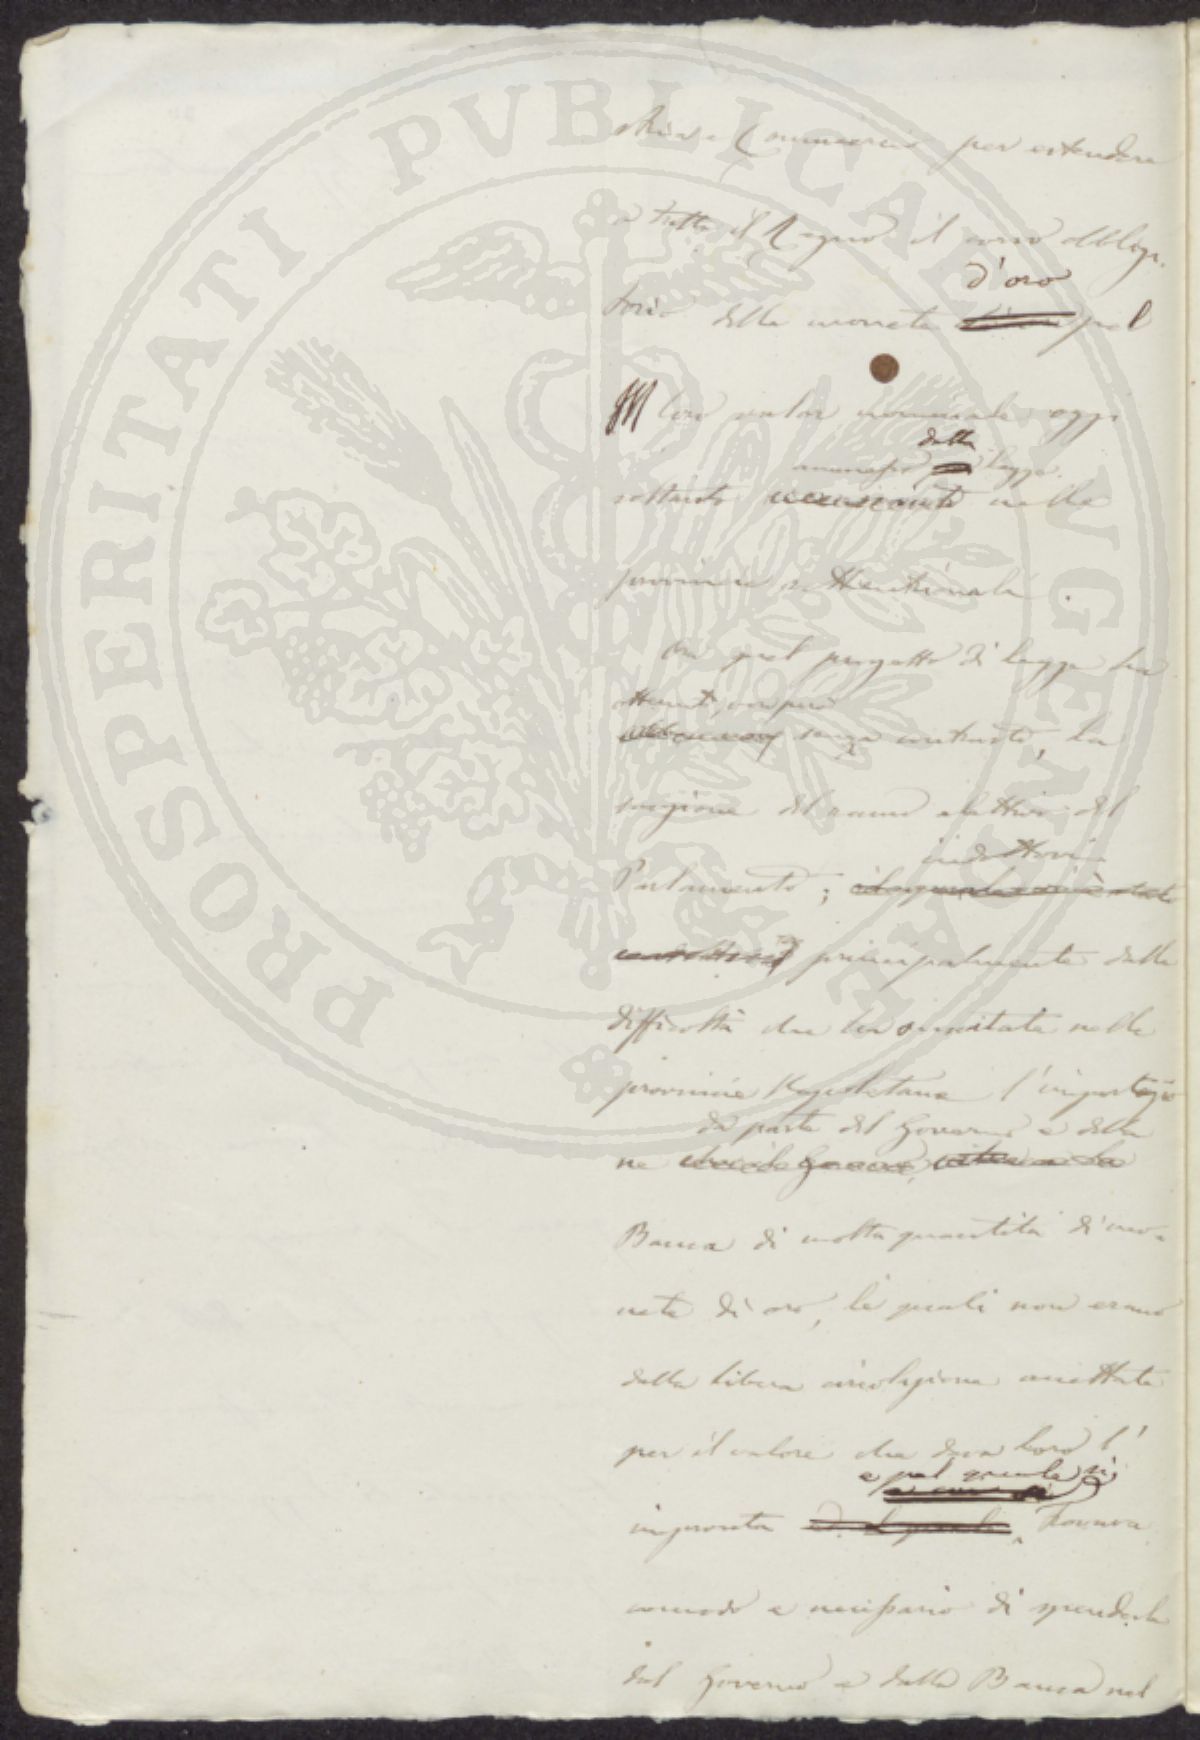 PROSPERITATI PVBLICAE AVGENDAE
stria e Commercio per estendere
a tutto il Regno il corso obbliga-
d'oro
torio delle monete pel
loro valor nominale oggi
dalla
ammesso legge
soltanto nelle
provincie settentrionali.
Ora quel progetto di legge ha
ottenuto
senza contrasto, la
sanzione del ramo elettivo del
indottovi
Parlamento;
principalmente dalle
difficoltà che ha suscitate nelle
provincie Napoletane l'importazio
da parte del Governo e della
ne
Banca di molta quantità di mo-
nete di oro, le quali non erano
dalla libera circolazione accettate
per il valore che dava loro l'
e pel quale si
impronta trovava
comodo e necessario di spenderle
dal Governo e dalla Banca nel